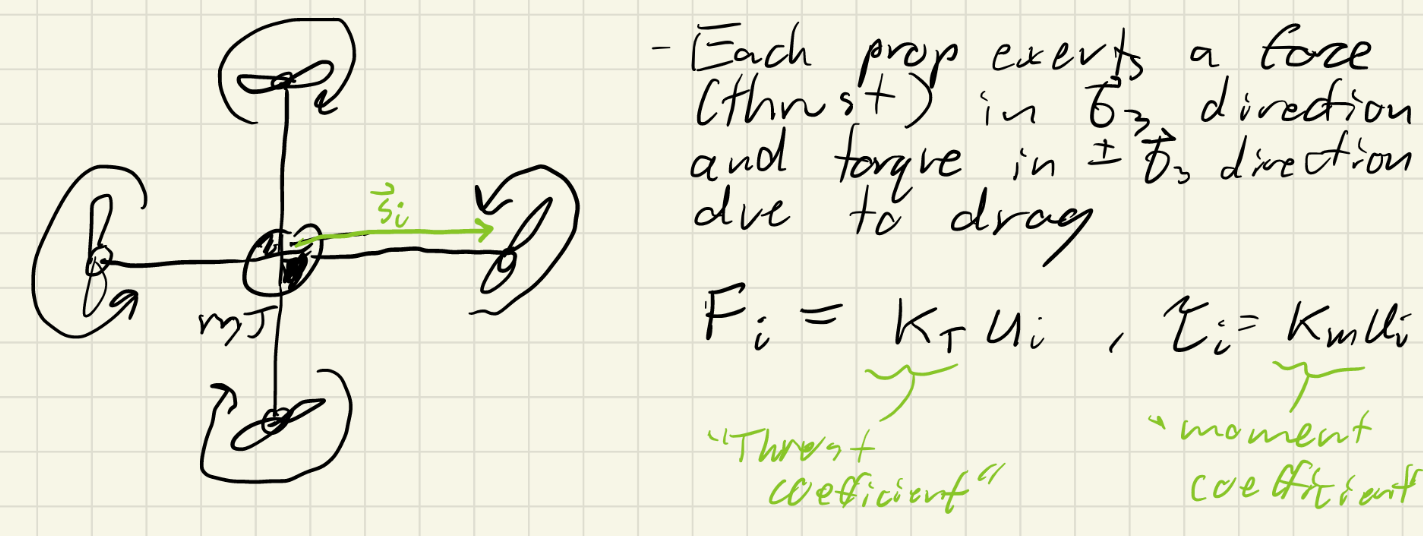 - Each prop exerts a force
(thrust) in b⃗₃ direction
and torque in ± b⃗₃ direction
due to drag
s⃗ᵢ
m J
Fᵢ = K_T uᵢ , τᵢ = Kₘ uᵢ
"Thrust
coefficient"
"moment
coefficient"